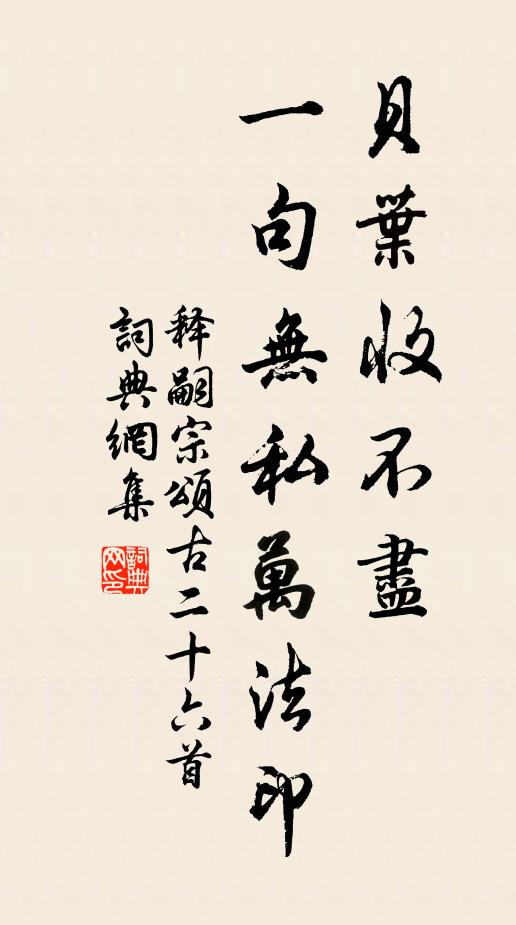 貝葉收不盡
一句無私萬法印
释嗣宗頌古二十六首
詞典網集
詞典网印